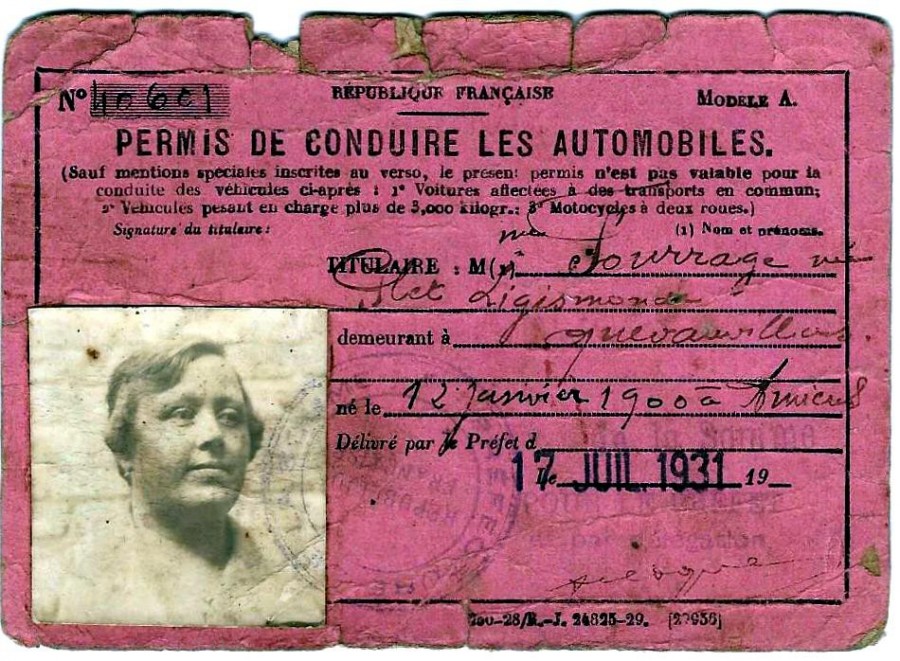 N° 40601
RÉPUBLIQUE FRANÇAISE
MODELE A.
PERMIS DE CONDUIRE LES AUTOMOBILES.
(Sauf mentions spéciales inscrites au verso, le présent permis n'est pas valable pour la
conduite des véhicules ci-après : 1° Voitures affectées à des transports en commun;
2° Véhicules pesant en charge plus de 3,000 kilogr.; 3° Motocycles à deux roues.)
Signature du titulaire :
(1) Nom et prénoms.
TITULAIRE : M(1) me Fourrage née
Ligismonde
demeurant à Quevauvillers
né le 12 Janvier 1900 à Amiens
Délivré par le Préfet d de la Somme
le 17 JUIL 1931 19
24825-29.